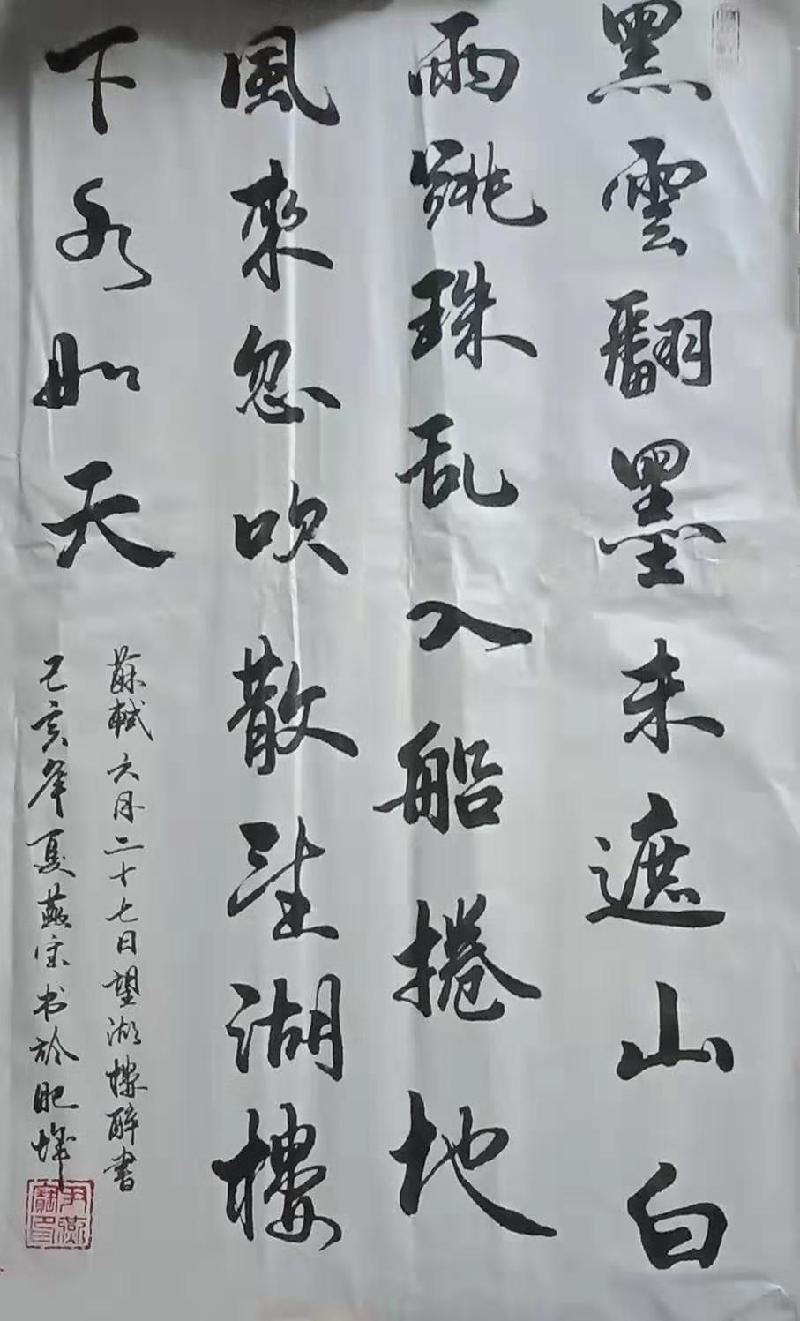 黑雲翻墨未遮山白
雨跳珠乱入船捲地
風來忽吹散望湖樓
下水如天
蘇軾六月二十七日望湖樓醉書
己亥年夏燕宗书於肥城